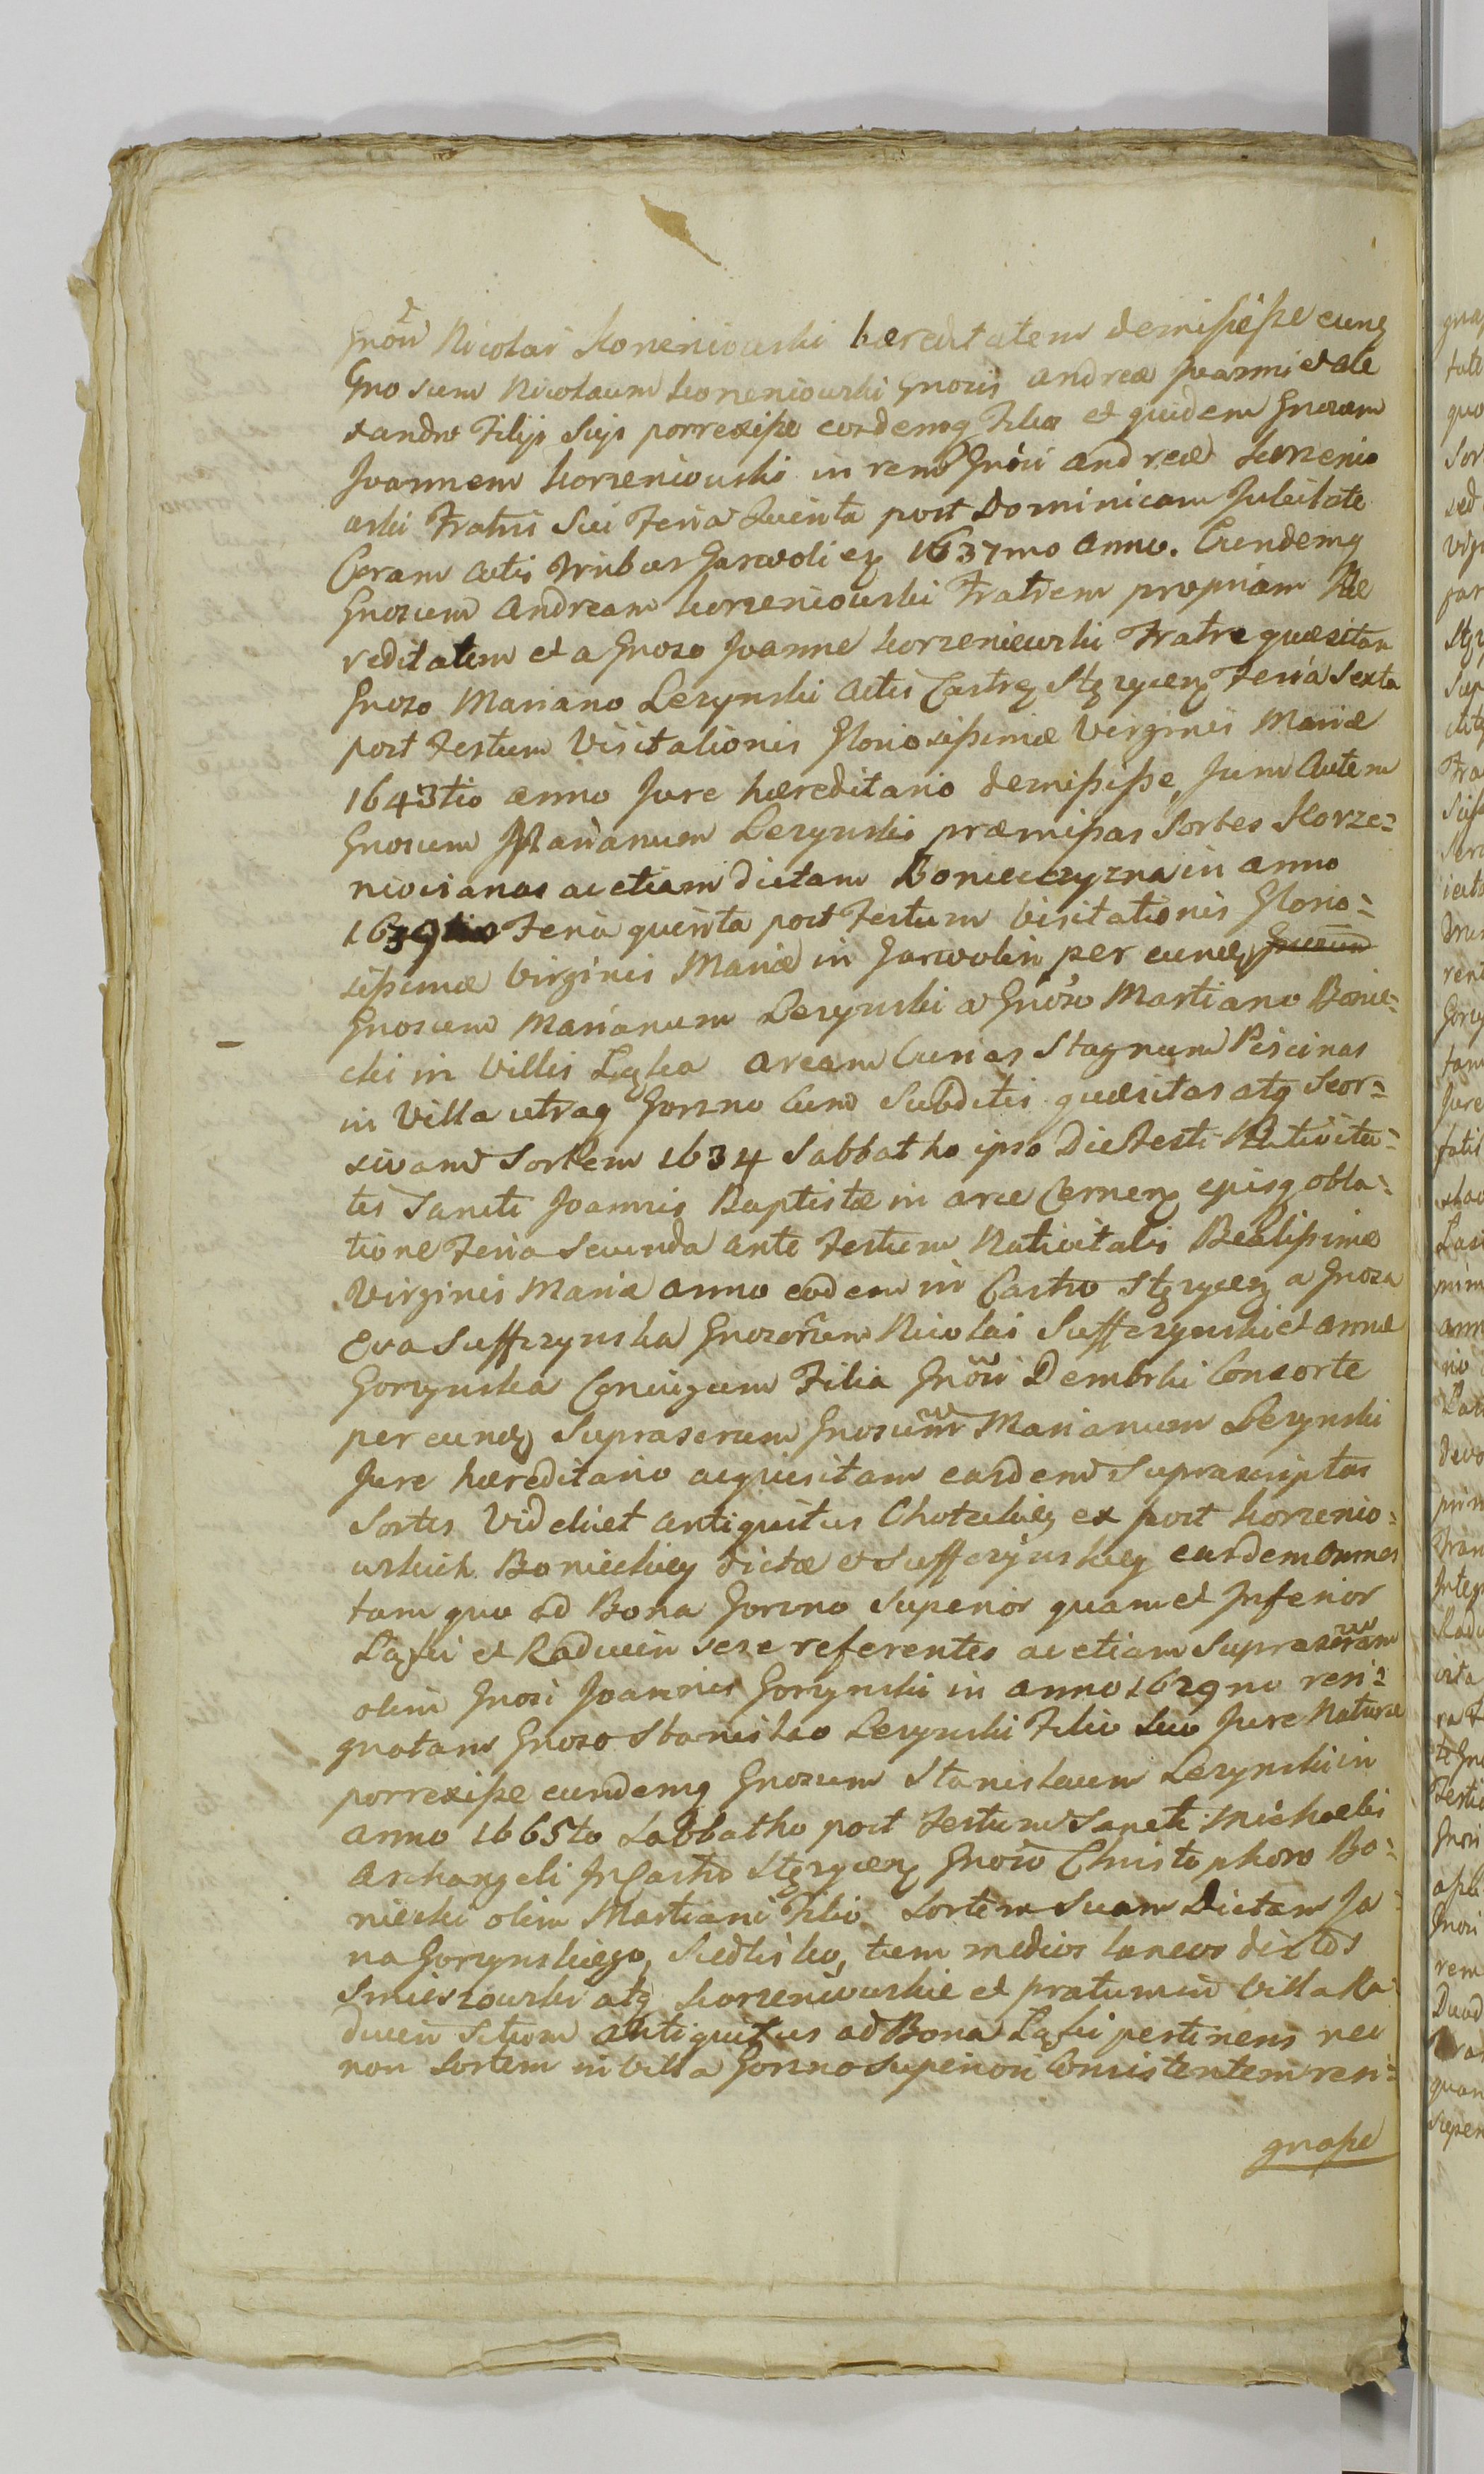 Gnosi Nicolai Korzeniowski hæreditatem demisisse eunq
Gnosum Nicolaum Korzeniowski Gnosis Andreæ Joanni et Ale
xandro Filijs Suis porrexisse eosdemq Filios et quidem Gnosum
Joannem Korzeniowski in rem Gnosi Andreæ Korzenio
wski Fratris Sui Feria Quinta post Dominicam Jubilate
Coram Actis Tribus Garwoli eң 1637mo Anno. Eundemq
Gnosum Andream Korzeniowski Fratrem propriam Hæ
reditatem et a Gnoso Joanne Korzeniewski Fratre quæsitam
Gnoso Mariano Lezynski Actis Castreң Stęzyceң Feria Sexta
post Festum Visitationis Gloriosissimæ Virginis Mariæ
1643tio anno Jure hæreditario demisisse, Jum Autem
Gnosum Marianum Lezynski præmissas Sortes Korze=
niovianas ac etiam dictam Boniecczyzna in anno
1639 Feria quinta post Festum Visitationis Glorio=
sissimæ Virginis Mariæ in Garwolin per eundę Gnosum
Gnosum Marianum Lezynski a Gnoso Martiano Bonie=
cki in Villis Łąka Aream Curias Stagnum Piscinas
in Villa utraq Gorzno Cum Subditis quæsitas atq Seor=
sivam Sortem 1634 Sabbatho ipso Die Festi Nativita=
tis Sancti Joannis Baptistæ in arce Cerneң episq obla=
tione Feria Secunda ante Festum Nativitatis Beatissimæ
Virginis Mariæ anno eodem in Castro Stęzyceң a Gnosa
Eva Suffczynska Gnosorum Nicolai Suffczynski et Annæ
Gorzynska Conjugum Filia Gnosi Dembski Consorte
per eundę Suprascrum Gnosum Marianum Lezynski
Jure hæreditario acquisitam easdem Suprascriptas
Sortes Videlicet antiquitus Choteckieң ex post Korzenio=
wskich Bonieckieң dictæ et Suffczynskieң easdem Omnes
tam quo ad Bona Gorzno Superior quam et Inferior
Łąki et Radwen sese referentes ac etiam Suprascram
olim Gnosi Joannis Gorzynski in anno 1629no resi=
gnatam Gnoso Stanislao Lezynski Filio Suo Jure Naturæ
porrexisse eundemq Gnosum Stanislaum Lezynski in
anno 1665to Sabbatho post Festum Sancti Michaelis
Archangeli In Castro Stęzyceң Gnoso Christophoro Bo=
niecki olim Martiani Filio Sortem Suam Dictam Ja=
na Gorzynskiego, Siedlisko, tum medios laneos dictos
Smieszowski atq Korzeniowskie et pratum in Villa Ra=
dwen Situm antiquitus ad Bona Łąki pertinens nec
non Sortem in Villa Gorzno Superiori Consistentem resi=
gnasse